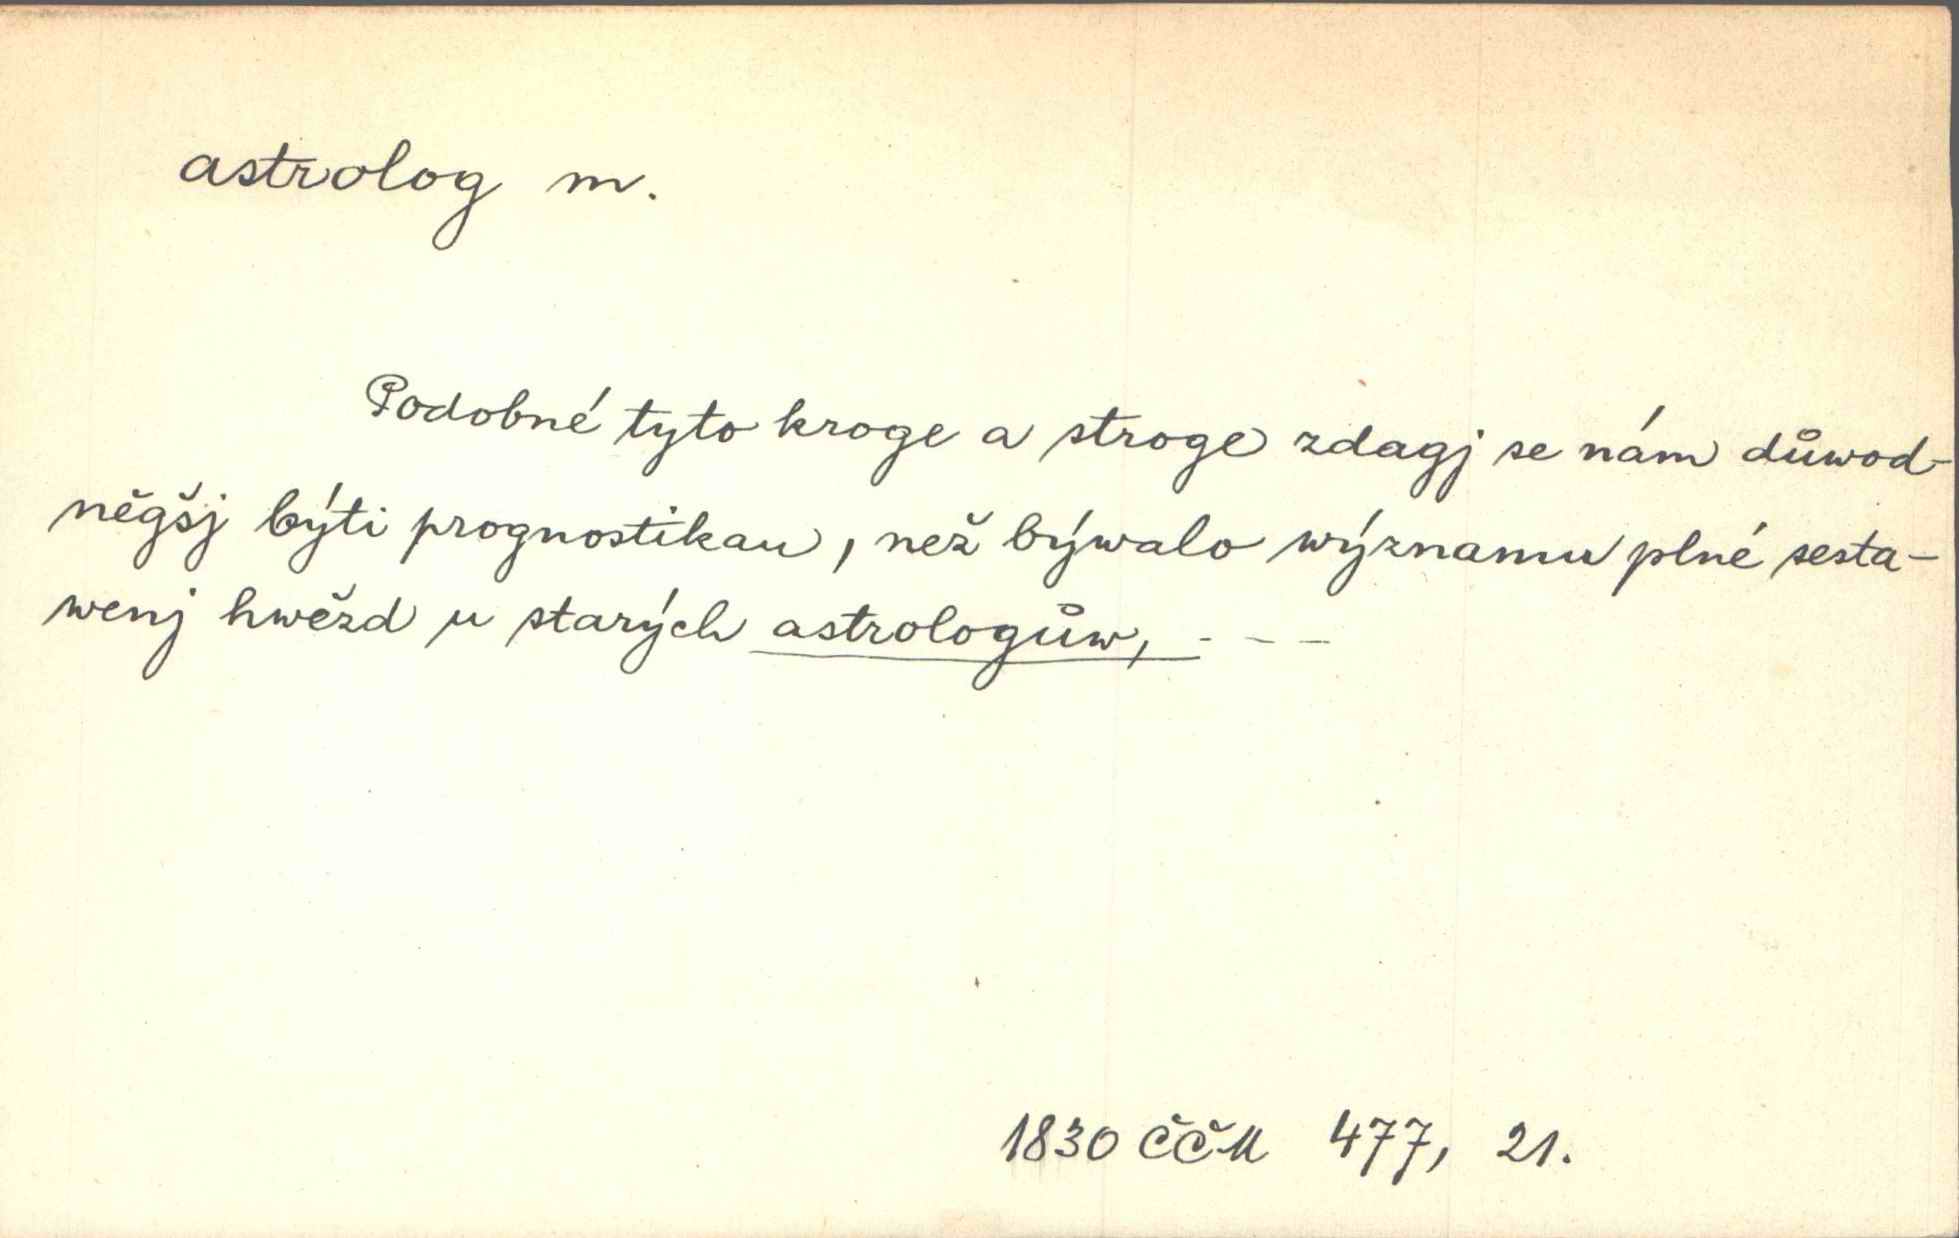 astrolog m.
Podobné tyto kroge a stroge zdagj se nám důwod-
něgšj býti prognostikau, než býwalo wýznamu plné sesta-
wenj hwězd u starých astrologůw, - - -
1830 ČČM 477, 21.